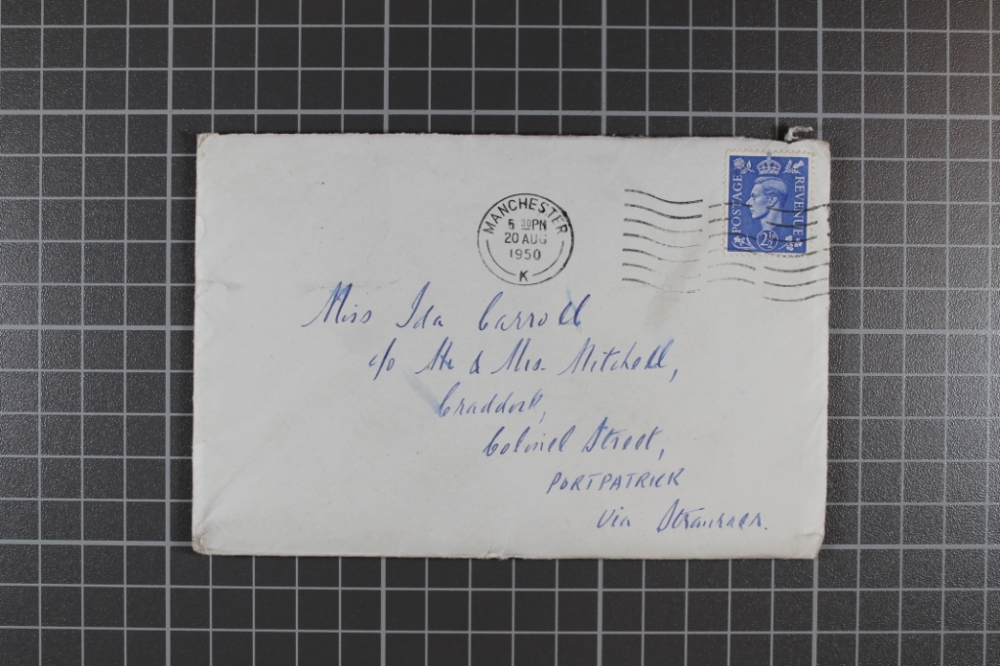 MANCHESTER
5 30PM
20 AUG
1950
K
POSTAGE
REVENUE
2½
Miss Ida Carroll
c/o Mr & Mrs. Mitchell,
Craddock,
Colonel Street,
PORTPATRICK
via Stranraer.